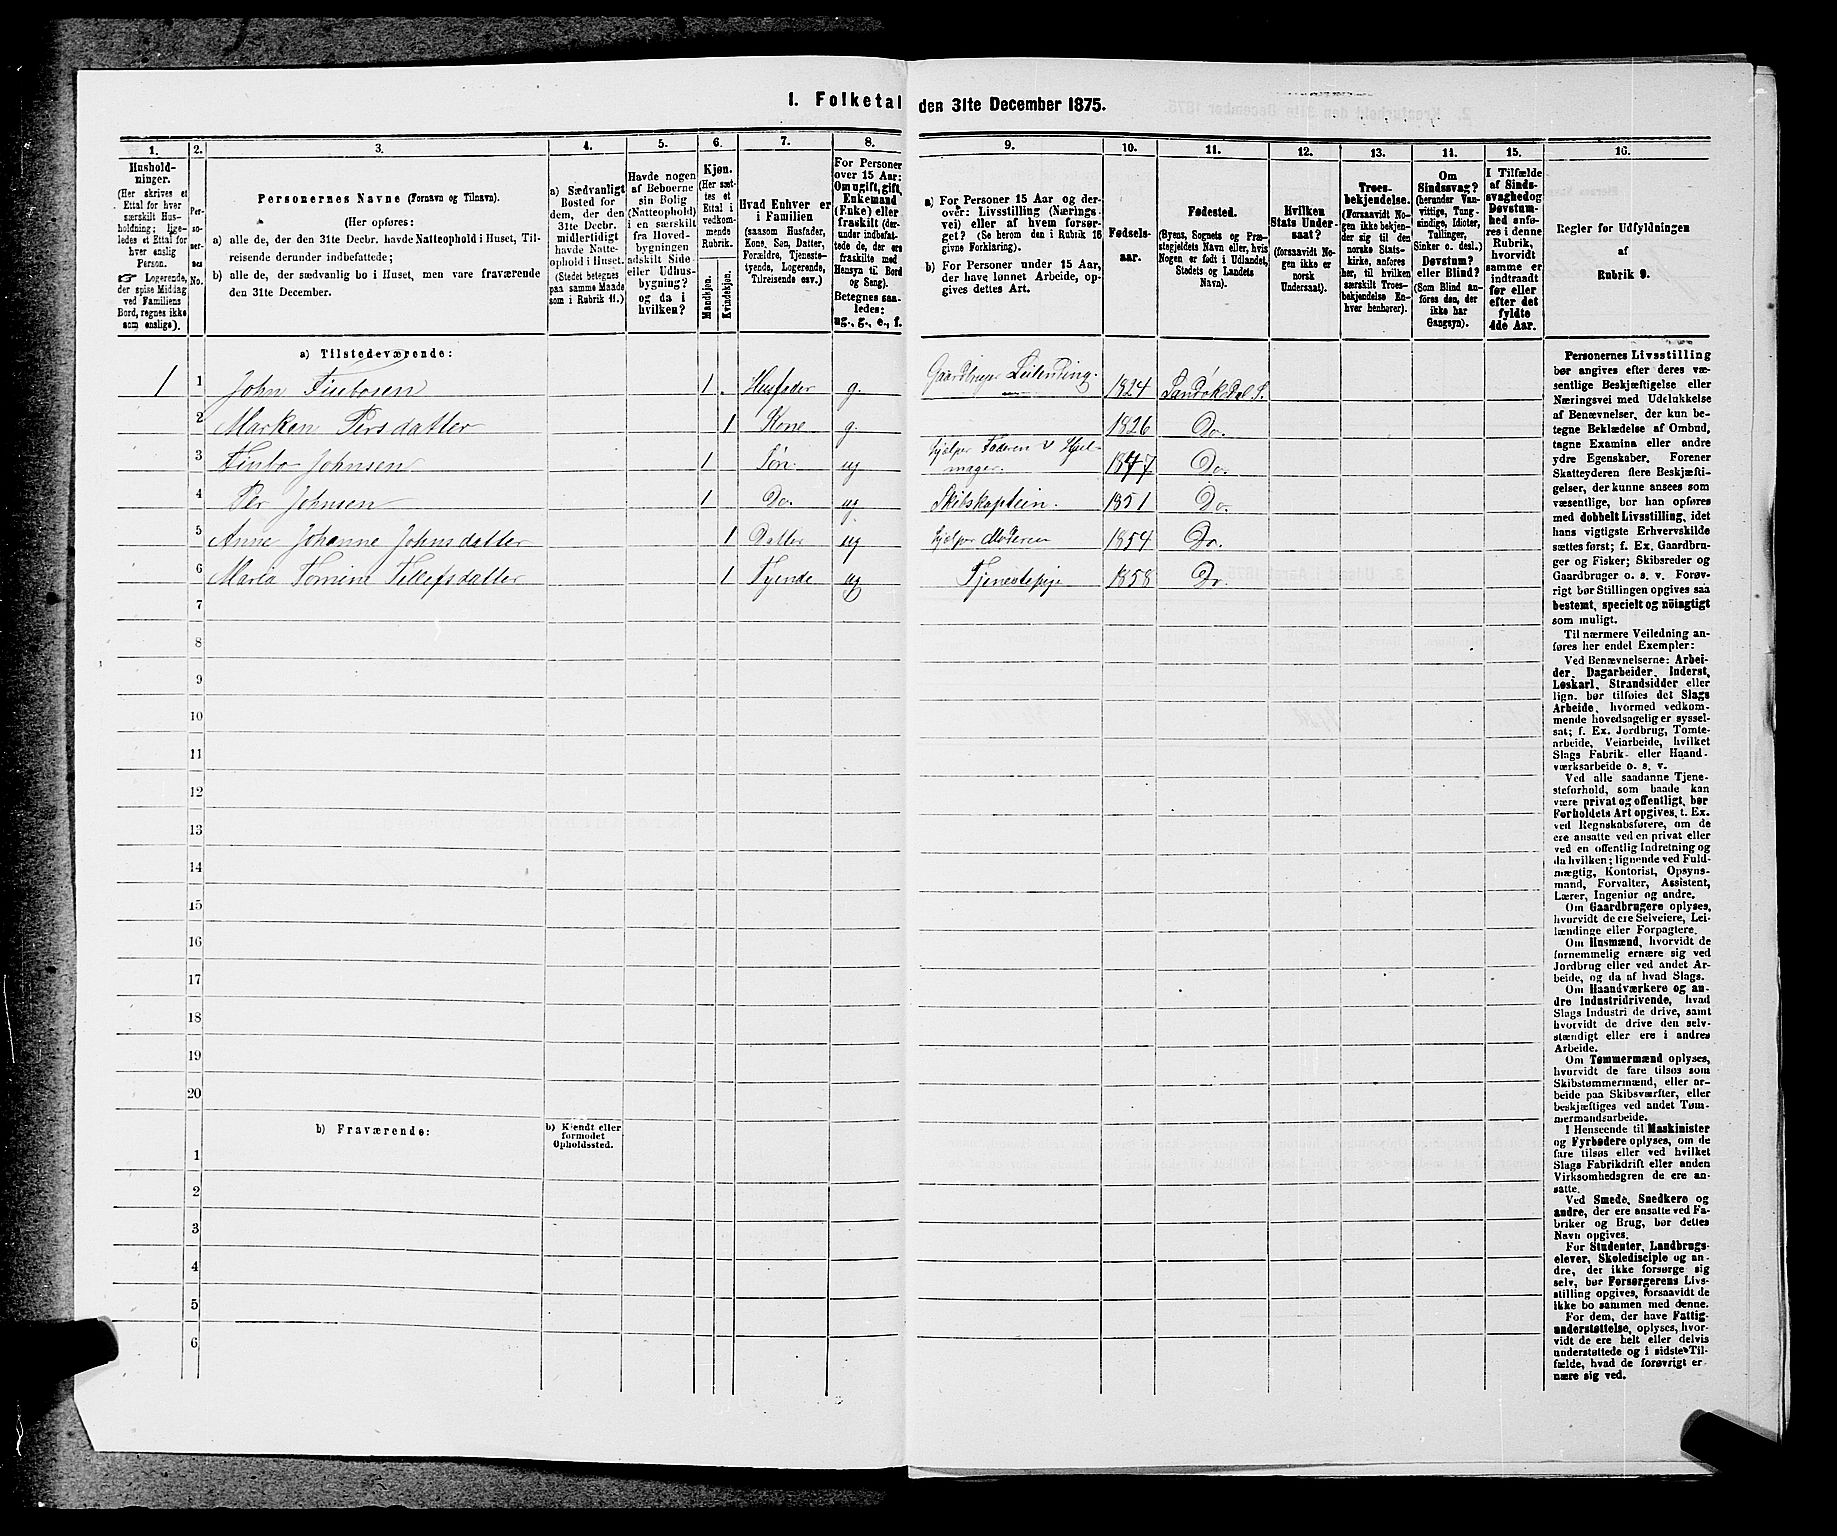 I. Folketal den 31te December 1875.
1.
Hushold-
ninger.
(Her skrives et
Ettal for hver
særskilt Hus-
holdning; lige-
ledes et Ettal for
hver enslig
Person.
☞ Logerende,
der spise Middag
ved Familiens
Bord, regnes ikke
som enslige).
2.
Per-
so-
ner-
nes
No.
3.
Personernes Navne (Fornavn og Tilnavn).
(Her opføres:
a) alle de, der den 31te Decbr. havde Natteophold i Huset, Til-
reisende derunder indbefattede;
b) alle de, der sædvanlig bo i Huset, men vare fraværende
den 31te December.
4.
a) Sædvanligt
Bosted for
dem, der den
31te Decbr.
midlertidigt
havde Natte-
ophold i Huset.
(Stedet betegnes
paa samme Maade
som i Rubrik 11.)
5.
Havde nogen
af Beboerne
sin Bolig
(Natteophold)
i en særskilt
fra Hoved-
bygningen
adskilt Side-
eller Udhus-
bygning?
og da i
hvilken?
6.
Kjøn.
(Her sæt-
tes et
Ettal i
vedkom-
mende
Rubrik.
Mandkjøn.
Kvindekjøn.
7.
Hvad Enhver er
i Familien
(saasom Husfader,
Kone, Søn, Datter,
Forældre, Tjeneste-
tyende, Logerende,
Tilreisende osv.)
8.
For Personer
over 15 Aar:
Om ugift, gift,
Enkemand
(Enke) eller
fraskilt (der-
under indbefat-
tede de, der ere
fraskilte med
Hensyn til Bord
og Seng).
Betegnes saa-
ledes:
ug., g., e., f.
9.
a) For Personer 15 Aar og der-
over: Livsstilling (Nærings-
vei) eller af hvem forsør-
get? (Se herom den i Rubrik 16
givne Forklaring).
b) For Personer under 15 Aar,
der have lønnet Arbeide, op-
gives dettes Art.
10.
Fødsels-
aar.
11.
Fødested.
(Byens, Sognets- og Præ-
stegjeldets Navn eller, hvis
Nogen er født i Udlandet,
Stedets og Landets
Navn).
12.
Hvilken
Stats Under-
saat?
(forsaavidt No-
gen ikke er
norsk
Undersaat).
13.
Troes-
bekjendelse.
(Forsaavidt No-
gen ikke bekjen-
der sig til den
norske Stats-
kirke, anføres
her, til hvilken
særskilt Troes-
bekjendelse En-
hver henhører).
14.
Om
Sindssvag?
(herunder Van-
vittige, Tung-
sindige, Idioter,
Tullinger,
Sinker o. desl.)
Døvstum?
eller Blind?
(Som Blind an-
føres den, der
ikke har
Gangsyn).
15.
I Tilfælde
af Sinds-
svaghed og
Døvstum-
hed anfø-
res i denne
Rubrik,
hvorvidt
samme er
indtraadt
før eller
efter det
fyldte
4de Aar.
16.
Regler for Udfyldningen
af
Rubrik 9.
a) Tilstedeværende:
1 1 John Finbosen 1. Husfader g. Gaardbruger Leilending. 1824 Landvk Dal S.
2 Marken Persdatter 1 Kone g. 1826 Do.
3 Finbo Johnsen 1 Søn. ug hjelper Faderen v Hjul-
mager. 1847 Do.
4 Per Johnsen 1 Do. ug Skibskaptein. 1851 Do.
5 Anne Johanne Johnsdatter 1 Datter ug hjelper Moderen 1854 Do.
6 Maria Tomine Tellefsdatter 1 Tyende ug Tjenestepige 1858 Do.
7
8
9
10
11
12
13
14
15
16
17
18
19
20
b) Fraværende:
b) Kjendt eller
formodet
Opholdssted.
1
2
3
4
5
6
Personernes Livsstilling
bør angives efter deres væ-
sentlige Beskjæftigelse eller
Næringsvei med Udelukkelse
af Benævnelser, der kun be-
tegne Beklædelse af Ombud,
tagne Examina eller andre
ydre Egenskaber. Forener
Skatteyderen flere Beskjæfti-
gelser, der kunne ansees som
væsentlige, bør han opføres
med dobbelt Livsstilling, idet
hans vigtigste Erhvervskilde
sættes først; f. Ex. Gaardbru-
ger og Fisker; Skibsreder og
Gaardbruger o. s. v. Forøv-
rigt bør Stillingen opgives saa
bestemt, specielt og nöiagtigt
som muligt.
Til nærmere Veiledning an-
føres her endel Exempler:
Ved Benævnelserne: Arbei-
der, Dagarbeider, Inderst,
Løskarl, Strandsidder eller
lign. bør tilføies det Slags
Arbeide, hvormed vedkom-
mende hovedsagelig er syssel-
sat; f. Ex. Jordbrug, Tomte-
arbeide, Veiarbeide, hvilket
Slags Fabrik- eller Haand-
værksarbeide o. s. v.
Ved alle saadanne Tjene-
steforhold, som baade kan
være privat og offentligt, bør
Forholdets Art opgives, t. Ex.
ved Regnskabsførere, om de
ere ansatte ved en privat eller
ved en offentlig Indretning og
da hvilken; lignende ved Fuld-
mægtig, Kontorist, Opsyns-
mand, Forvalter, Assistent,
Lærer, Ingeniør og andre.
Om Gaardbrugere oplyses,
hvorvidt de ere Selveiere, Lei-
lændinge eller Forpagtere.
Om Husmænd, hvorvidt de
fornemmelig ernære sig ved
Jordbrug eller ved andet Ar-
beide, og da af hvad Slags.
Om Haandværkere og an-
dre Industridrivende, hvad
Slags Industri de drive, samt
hvorvidt de drive den selv-
stændigt eller ere i andres
Arbeide.
Om Tømmermænd oplyses,
hvorvidt de fare tilsøs som
Skibstømmermænd, eller ar-
beide paa Skibsværfter, eller
beskjæftiges ved andet Tøm-
mermandsarbeide.
I Henseende til Maskinister
og Fyrbødere oplyses, om de
fare tilsøs eller ved hvilket
Slags Fabrikdrift eller anden
Virksomhedsgren de ere an-
satte.
Ved Smede, Snedkere og
andre, der ere ansatte ved Fa-
briker og Brug, bør dettes
Navn opgives.
For Studenter, Landbrugs-
elever, Skoledisciple og an-
dre, der ikke forsørge sig
selv, bør Forsørgerens Livs-
stilling opgives, forsaavidt de
ikke bo sammen med denne.
For dem, der have Fattig-
understøttelse, oplyses, hvor-
vidt de ere helt eller delvis
understøttede og i sidste Til-
fælde, hvad de forøvrigt er-
nære sig ved.